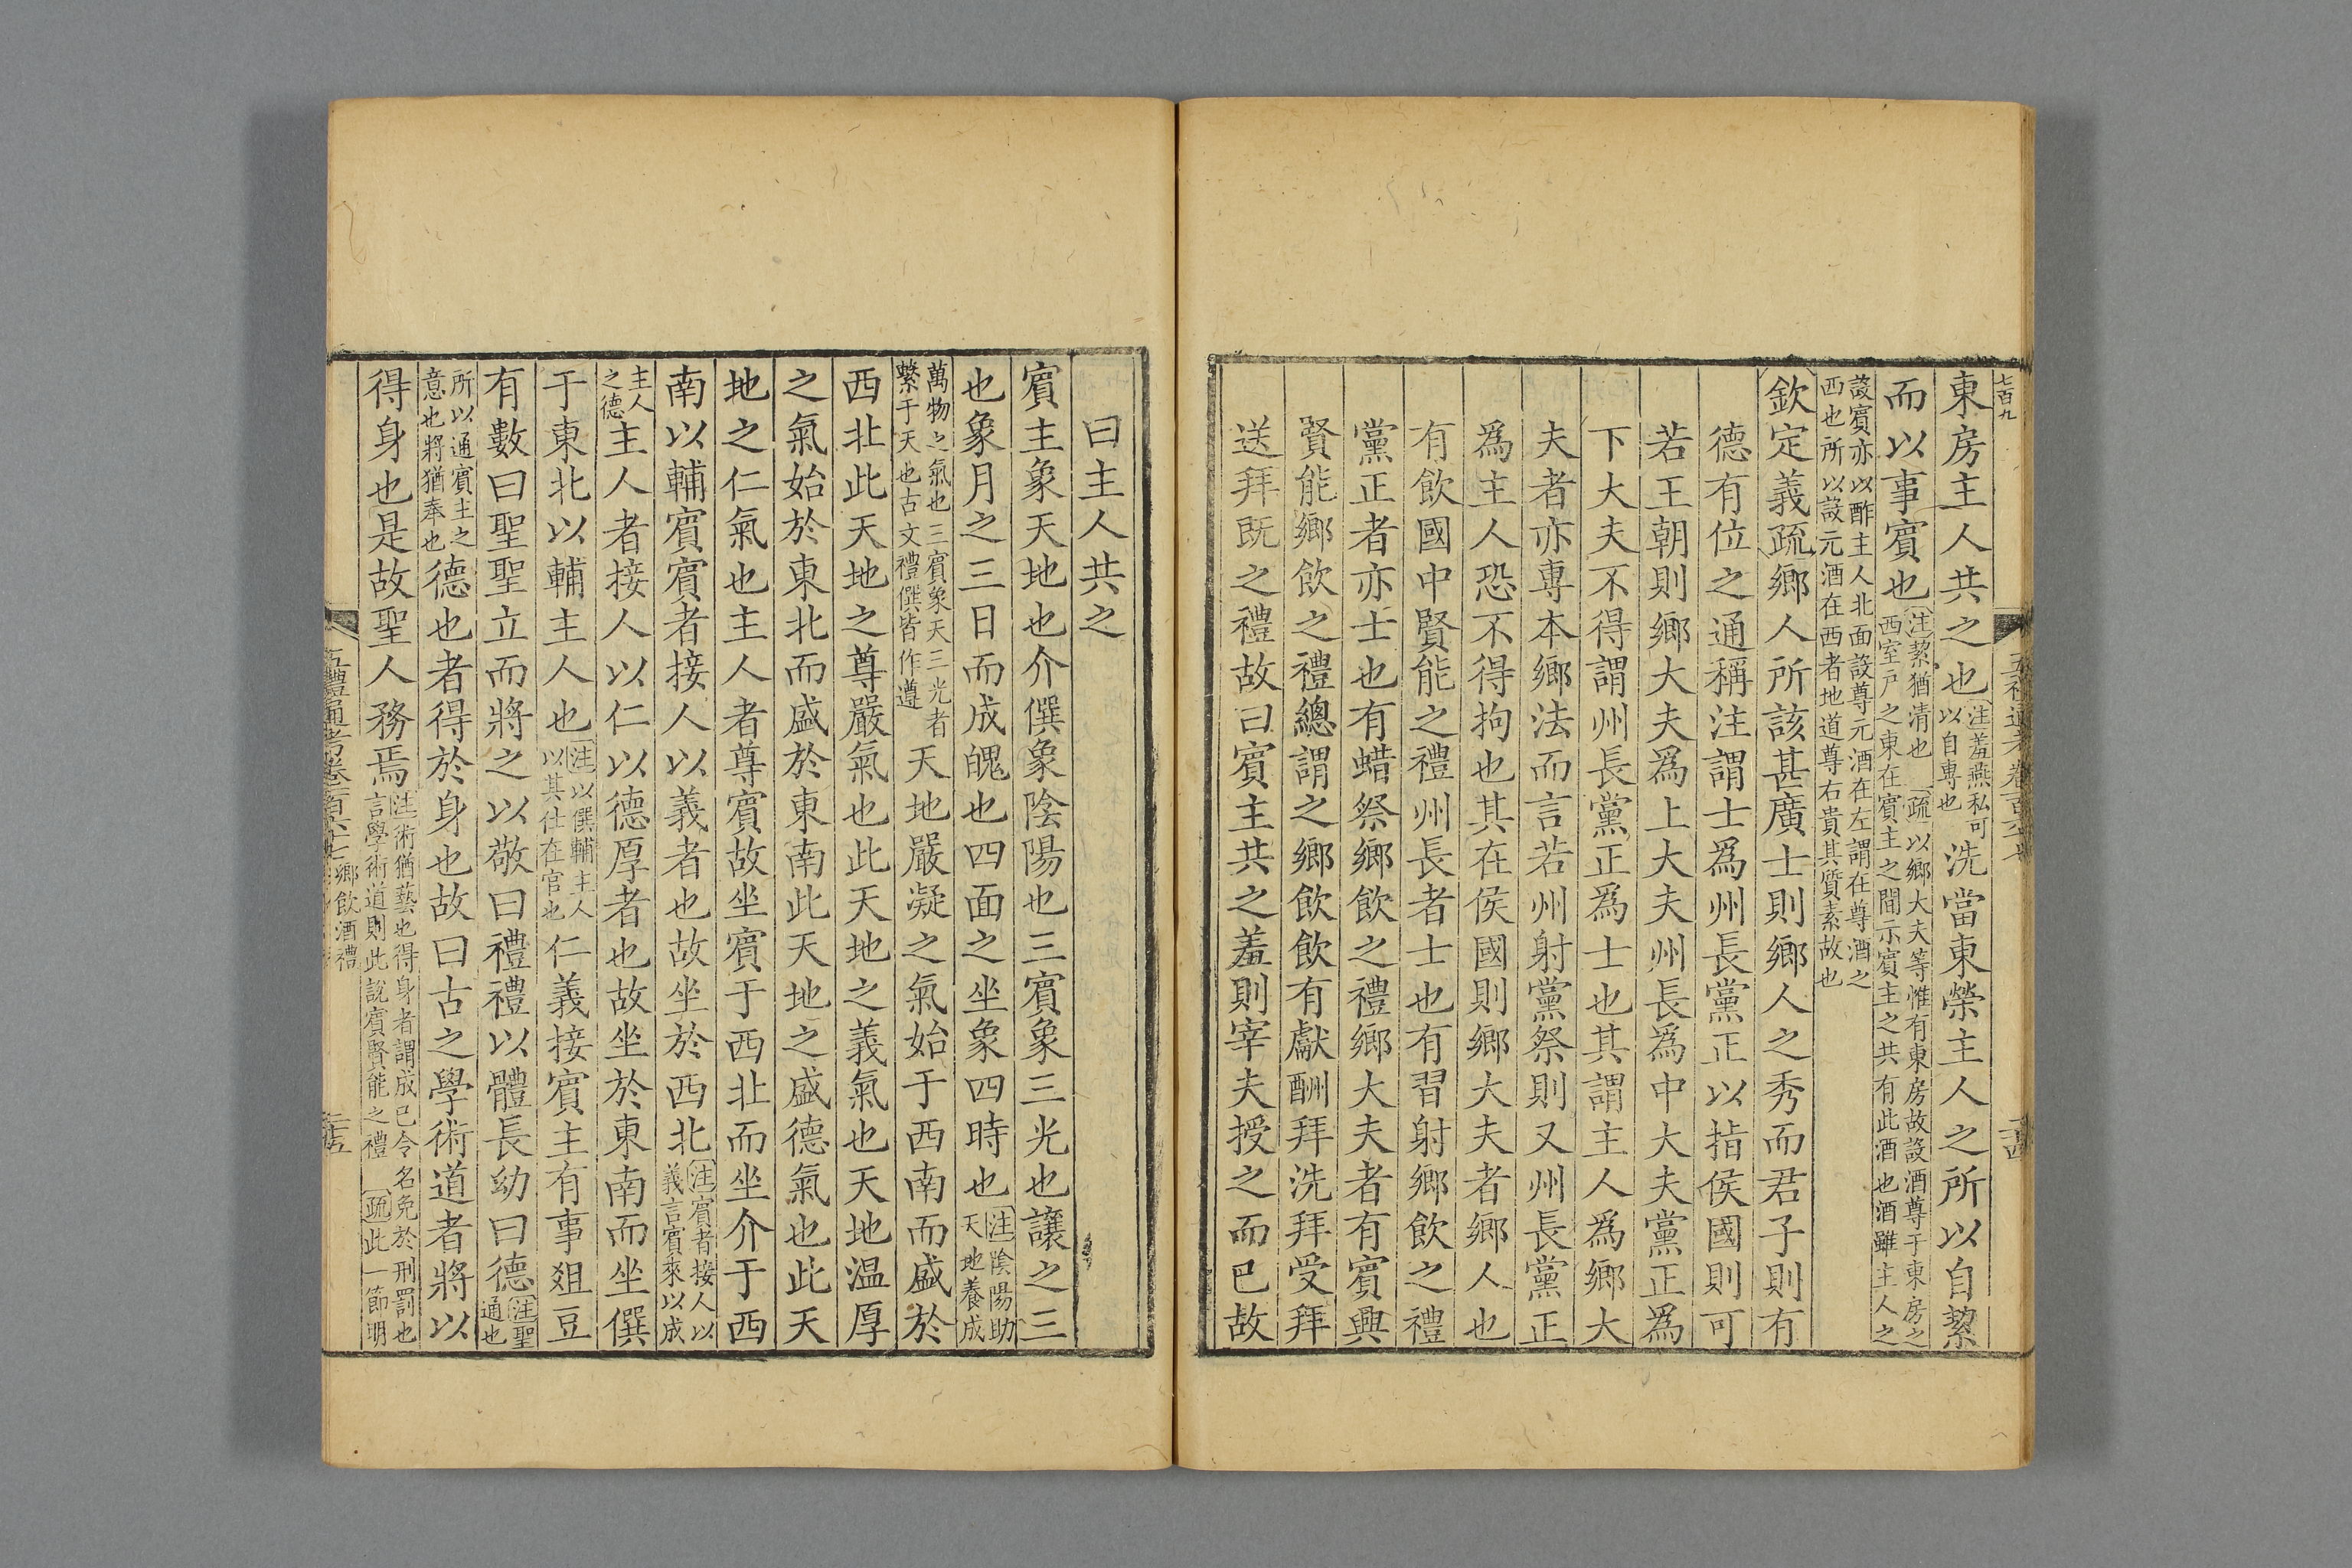 七百九
東房主人共之也注羞燕私可以自專也洗當東榮主人之所以自絜
而以事賓也注絜猶清也 疏以鄉大夫等惟有東房故設酒尊于東房之西室戶之東在賓主之間示賓主之共有此酒也酒雖主人之
設賓亦以酢主人北面設尊元酒在左謂在尊酒之西也所以設元酒在西者地道尊右貴其質素故也
欽定義疏鄉人所該甚廣士則鄉人之秀而君子則有
德有位之通稱注謂士爲州長黨正以指侯國則可
若王朝則鄉大夫爲上大夫州長爲中大夫黨正爲
下大夫不得謂州長黨正爲士也其謂主人爲鄉大
夫者亦專本鄉法而言若州射黨祭則又州長黨正
爲主人恐不得拘也其在侯國則鄉大夫者鄉人也
有飲國中賢能之禮州長者士也有習射鄉飲之禮
黨正者亦士也有蜡祭鄉飲之禮鄉大夫者有賓興
賢能鄉飲之禮總謂之鄉飲飲有獻酬拜洗拜受拜
送拜旣之禮故曰賓主共之羞則宰夫授之而已故
曰主人共之
賓主象天地也介僎象陰陽也三賓象三光也讓之三
也象月之三日而成魄也四面之坐象四時也注陰陽助天地養成
萬物之氣也三賓象天三光者繫于天也古文禮僎皆作遵天地嚴凝之氣始于西南而盛於
西北此天地之尊嚴氣也此天地之義氣也天地温厚
之氣始於東北而盛於東南此天地之盛德氣也此天
地之仁氣也主人者尊賓故坐賓于西北而坐介于西
南以輔賓賓者接人以義者也故坐於西北注賓者接人以義言賓來以成
主人之德主人者接人以仁以德厚者也故坐於東南而坐僎
于東北以輔主人也注以僎輔主人以其仕在官也仁義接賓主有事俎豆
有數曰聖聖立而將之以敬曰禮禮以體長幼曰德注聖通也
所以通賓主之意也將猶奉也德也者得於身也故曰古之學術道者將以
得身也是故聖人務焉注術猶藝也得身者謂成已令名免於刑罰也言學術道則此說賓賢能之禮 疏此一節明
五禮通考卷一百六十七 鄉飲酒禮